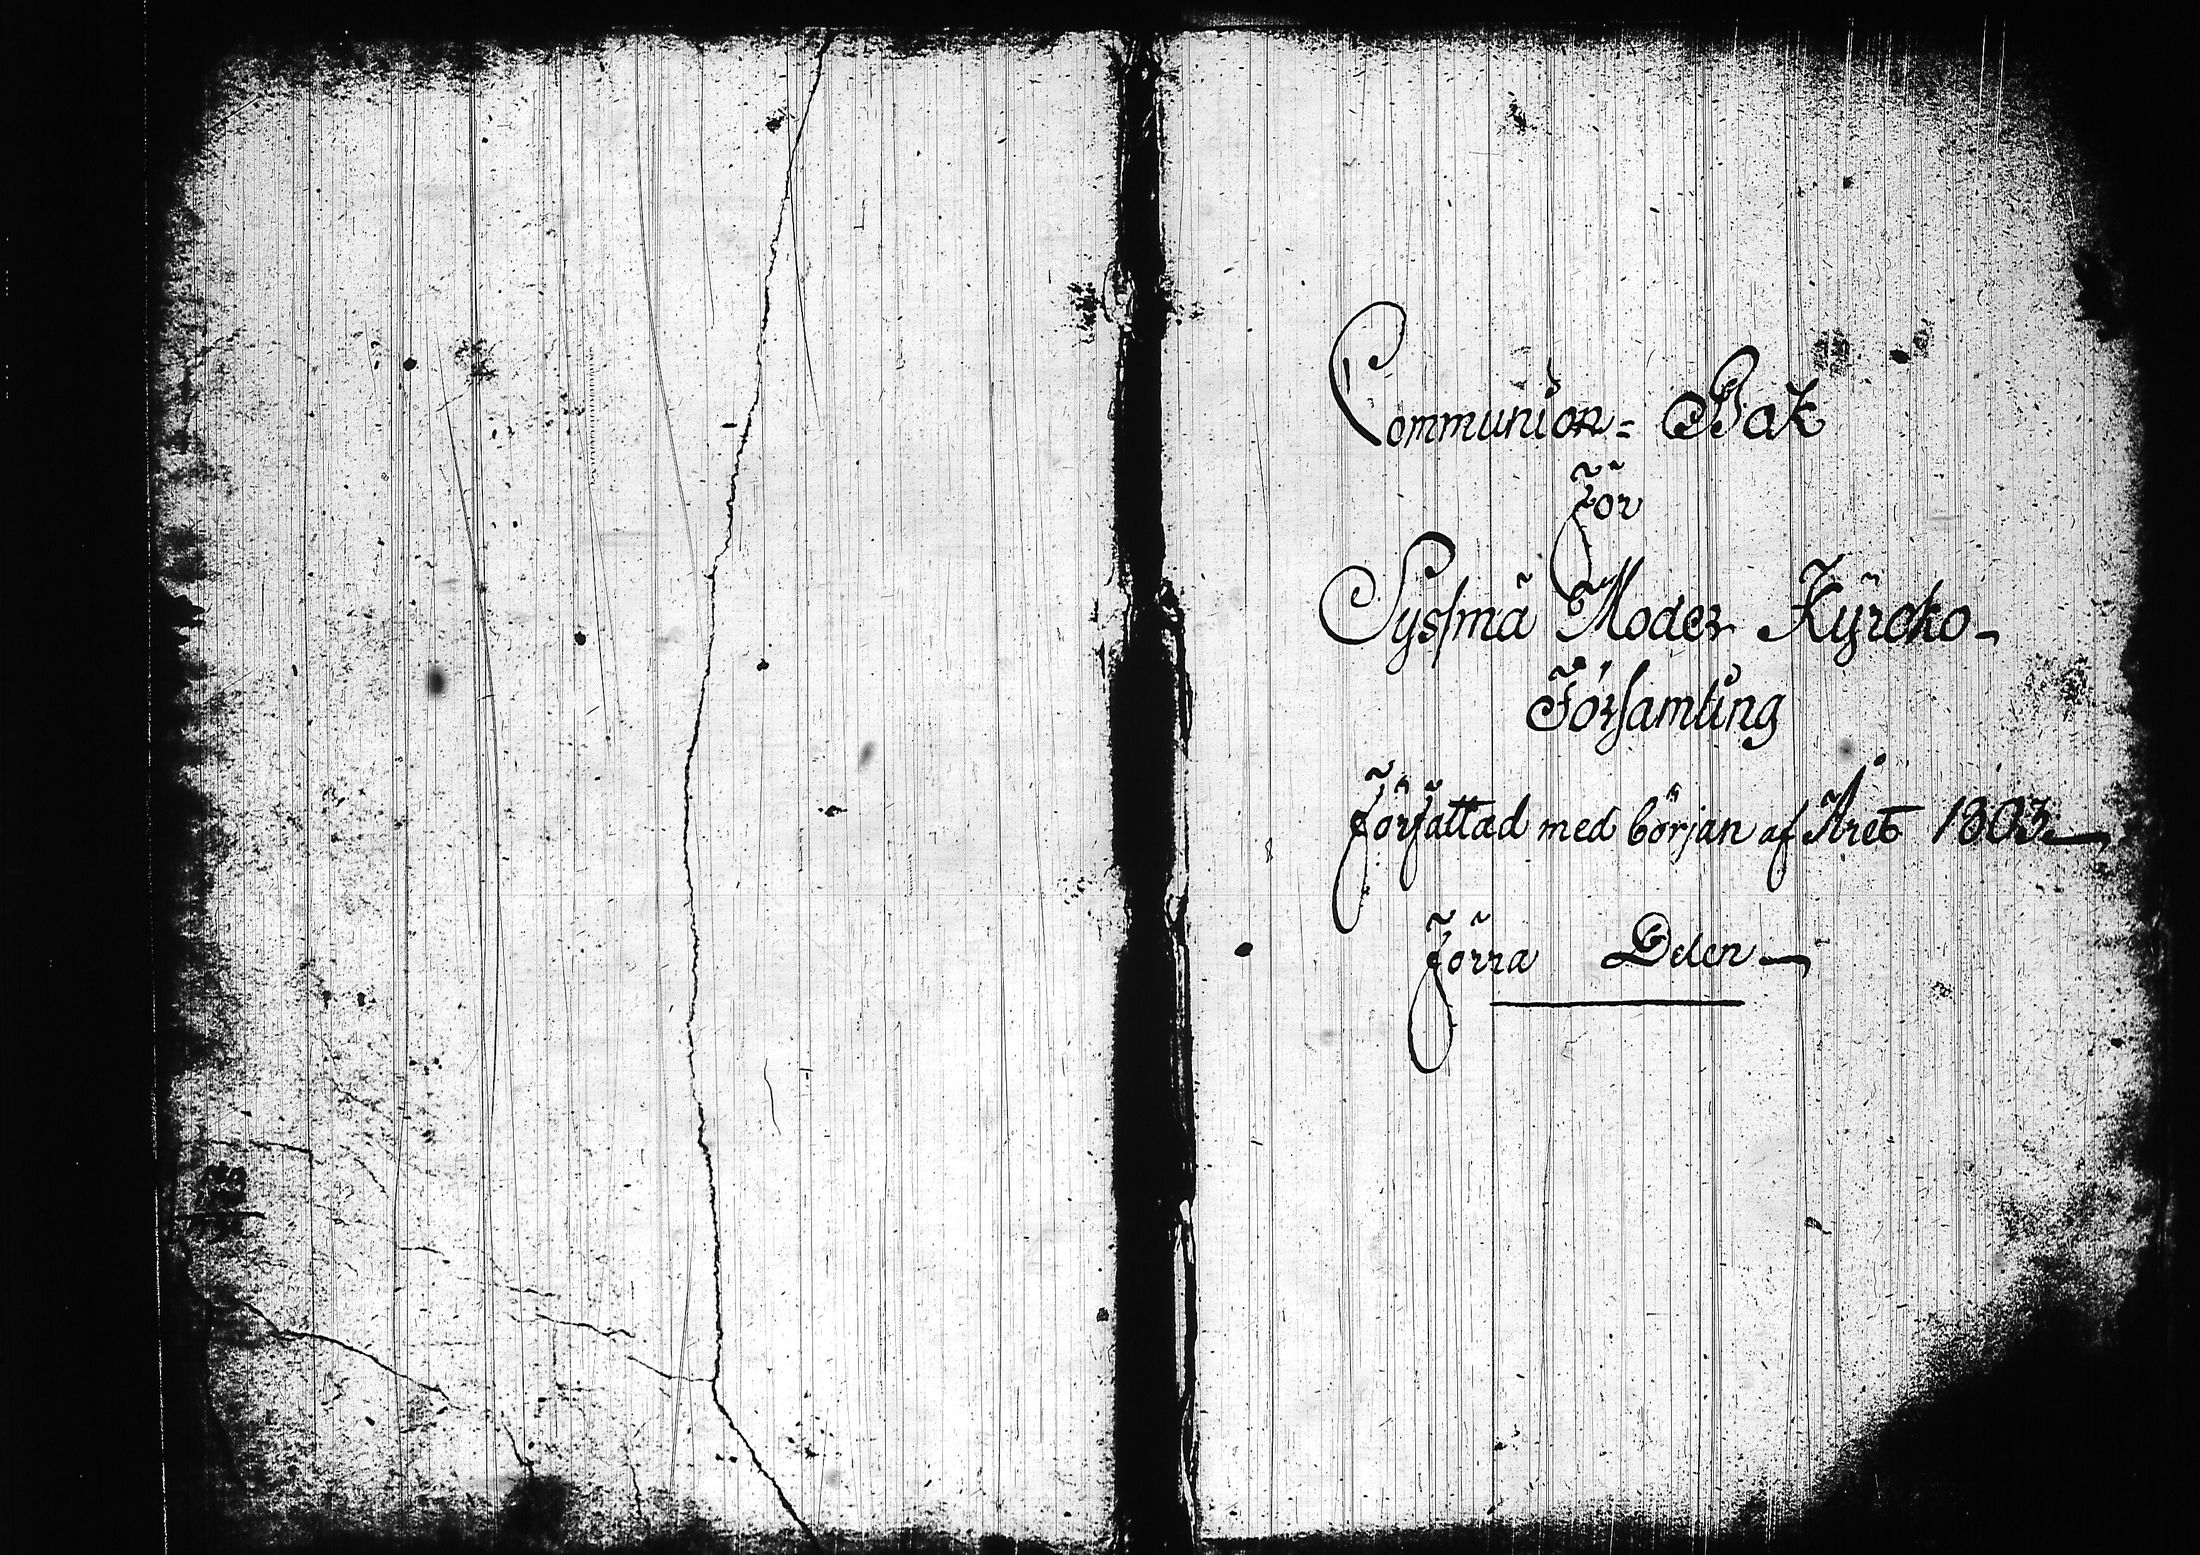 Communion- Bok
För
Syssmä Moder Kyrcko-
Församling
författad med början af Året 1803.
förra Delen